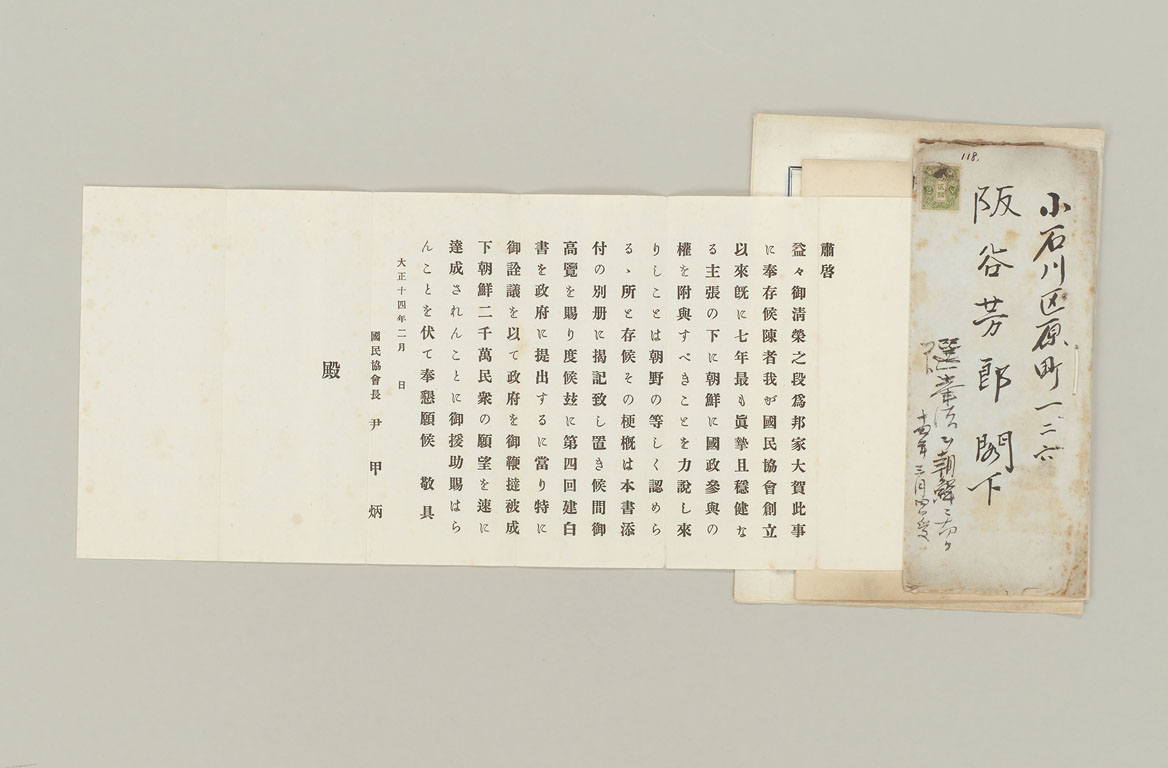 118.
小石川区原町一二六
阪谷芳郎閣下
選挙法ヲ朝鮮ニ
肅啓
益々御清榮之段爲邦家大賀此事
に奉存候陳者我が國民協會創立
以來旣に七年最も眞摯且穩健な
る主張の下に朝鮮に國政參與の
權を附與すべきことを力說し來
りしことは朝野の等しく認めら
るゝ所と存候その梗概は本書添
付の別册に揭記致し置き候間御
高覽を賜り度候玆に第四回建白
書を政府に提出するに當り特に
御詮議を以て政府を御鞭撻被成
下朝鮮二千萬民衆の願望を速に
達成されんことに御援助賜はら
んことを伏て奉懇願候　敬具
大正十四年二月　日
國民協會長　尹甲炳
殿